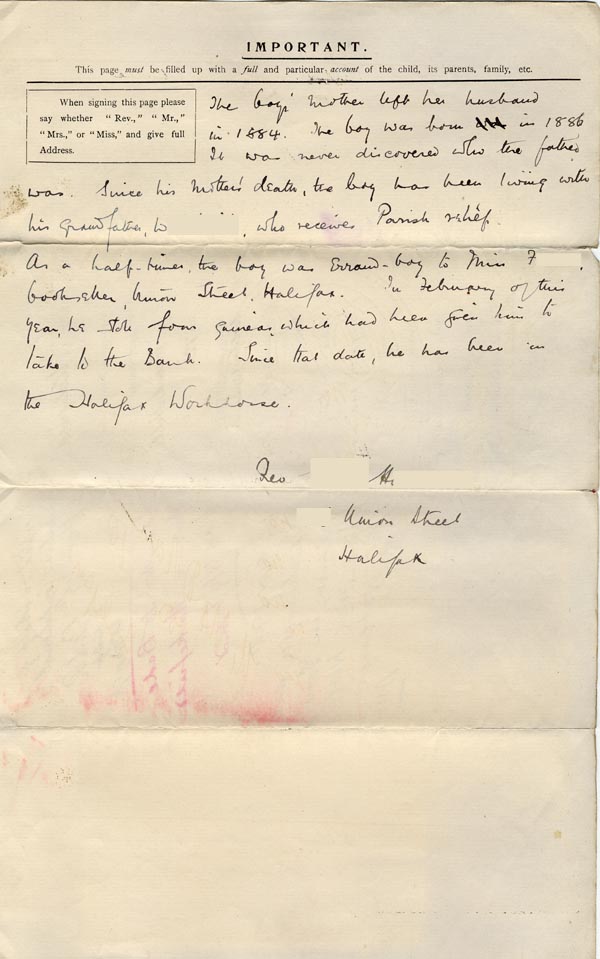 IMPORTANT.
This page must be filled up with a full and particular account of the child, its parents, family, etc.
When signing this page please
say whether "Rev.," "Mr.,"
"Mrs.," or "Miss," and give full
Address.
The boys' mother left her husband
in 1884. The boy was born in 1886
It was never discovered who the father
was. Since his mother's death, the boy has been living with
his Grandfather, W , who receives Parish relief.
As a half-timer, the boy was Errand-boy to Miss F ,
bookseller, Union Street, Halifax. In February of this
year, he stole four guineas which had been given him to
take to the Bank. Since that date, he has been in
the Halifax Workhouse.
Geo H
Union Street
Halifax